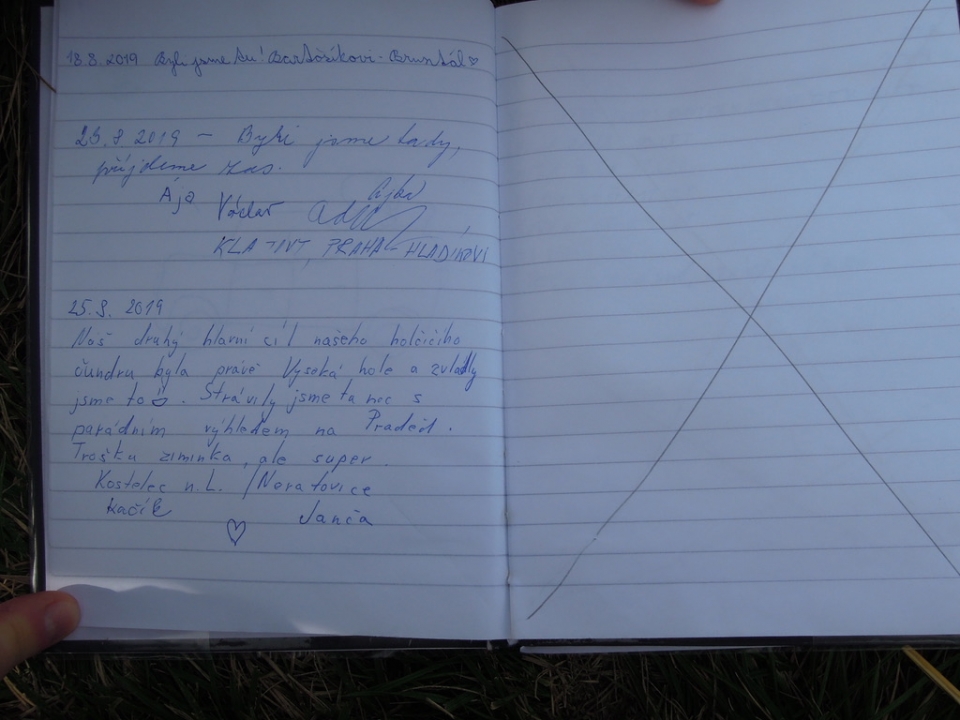 18.8.2019 Byli jsme tu! Bartošíkovi - Bruntál ♡
25.8.2019 - Byli jsme tady,
přijdeme zas.
Ája Václav
PRAHA - HLADÍKOVI
25.8. 2019
Náš druhý hlavní cíl našeho holčičího
čundru byla právě Vysoká hole a zvládly
jsme to. Strávily jsme tu noc s
parádním výhledem na Praděd.
Trošku ziminka, ale super.
Kostelec n.L. / Neratovice
Kačík Janča